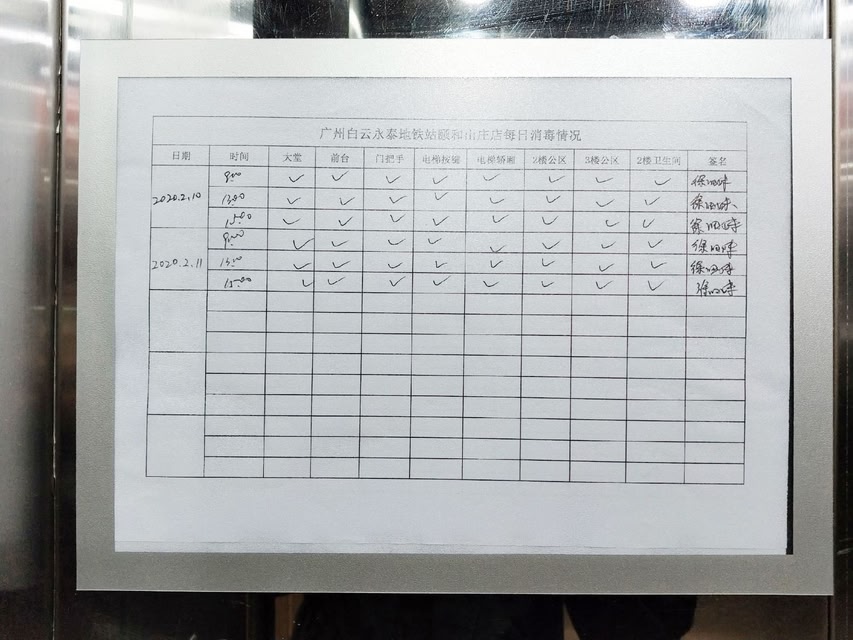 广州白云永泰地铁站颐和山庄店每日消毒情况
日期 时间 大堂 前台 门把手 电梯按钮 电梯轿厢 2楼公区 3楼公区 2楼卫生间 签名
2020.2.10 9:00 ✓ ✓ ✓ ✓ ✓ ✓ ✓ ✓
13:00 ✓ ✓ ✓ ✓ ✓ ✓ ✓ ✓
15:00 ✓ ✓ ✓ ✓ ✓ ✓ ✓ ✓
2020.2.11 9:00 ✓ ✓ ✓ ✓ ✓ ✓ ✓ ✓
13:00 ✓ ✓ ✓ ✓ ✓ ✓ ✓ ✓
15:00 ✓ ✓ ✓ ✓ ✓ ✓ ✓ ✓